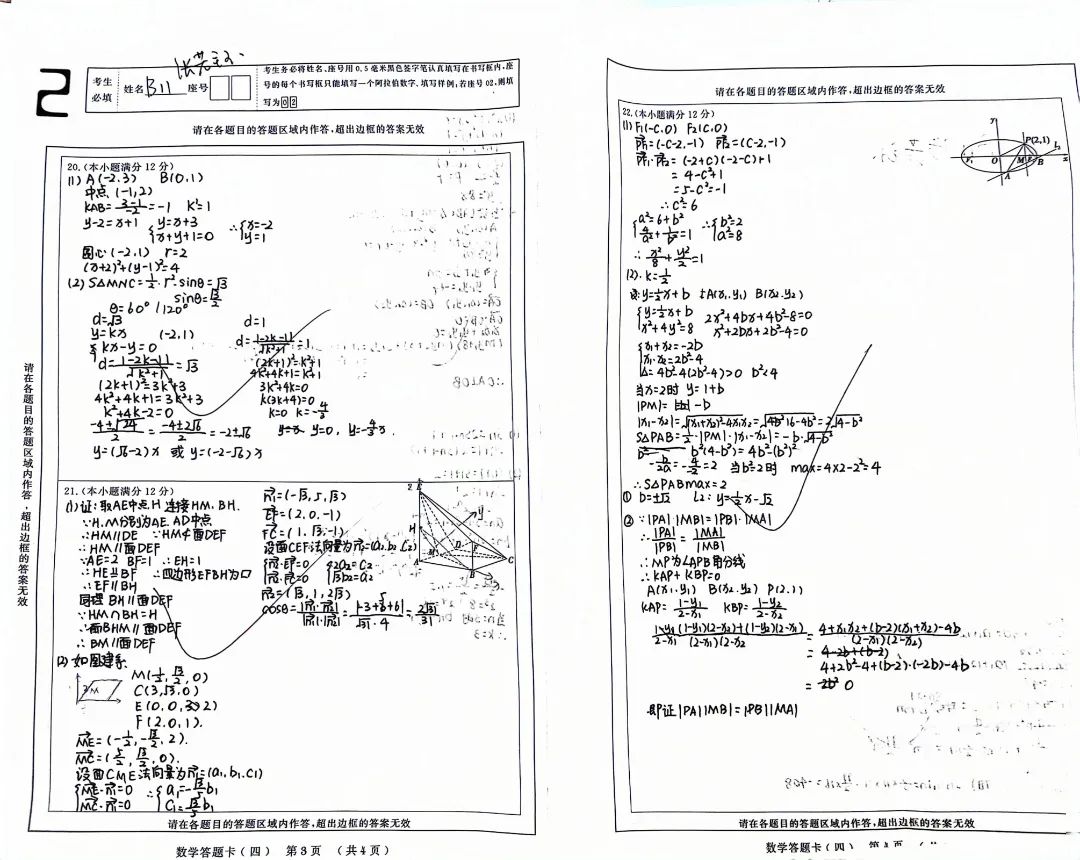 2
考生
必填
姓名 B11
座号
考生务必将姓名、座号用0.5毫米黑色签字笔认真填写在书写框内,座
号的每个书写框只能填写一个阿拉伯数字、填写样例:若座号02,则填
写为02
请在各题目的答题区域内作答,超出边框的答案无效
20.(本小题满分12分)
(1) A(-2.3) B(0,1)
中点(-1,2)
KAB=(3-1)/-2=-1 K'=1
y-2=x+1 {y=x+3 x+y+1=0 ∴{x=-2 y=1
圆心(-2,1) r=2
(x+2)²+(y-1)²=4
(2) S△MNC=½·r²·sinθ=√3
sinθ=√3/2
θ=60°/120°
d=√3
y=kx (-2,1)
{kx-y=0
d=|-2k-1|/√(k²+1)=√3
(2k+1)²=3k²+3
4k²+4k+1=3k²+3
k²+4k-2=0
(-4±√24)/2=(-4±2√6)/2=-2±√6
y=(√6-2)x 或 y=(-2-√6)x
d=1
d=|-2k-1|/√(k²+1)=1
(2k+1)²=k²+1
4k²+4k+1=k²+1
3k²+4k=0
k(3k+4)=0
k=0 k=-4/3
y=0, y=-4/3x
21.(本小题满分12分)
(1)证:取AE中点H 连接HM、BH.
∵H、M分别为AE、AD中点
∴HM∥DE ∵HM⊄面DEF
∴HM∥面DEF
∵AE=2 BF=1 ∴EH=1
∴HE⫽BF ∴四边形EFBH为▱
∴EF∥BH
同理BH∥面DEF
∵HM∩BH=H
∴面BHM∥面DEF
∴BM∥面DEF
(2)如图建系
M(½,√3/2,0)
C(3,√3,0)
E(0,0,2)
F(2.0,1).
ME=(-½,-√3/2,2).
MC=(5/2,√3/2,0).
设面CME法向量为n₁=(a₁,b₁,c₁)
{ME·n₁=0 MC·n₁=0 ∴{a₁=-√3/5b₁ c₁=√3/5b₁
n₁=(-√3,5,√3)
EF=(2,0,-1)
FC=(1,√3,-1)
设面CEF法向量为n₂=(a₂,b₂,c₂)
{n₂·EF=0 n₂·FC=0 {2a₂=c₂ √3b₂=a₂
n₂=(√3,1,2√3)
cosθ=|n₁·n₂|/|n₁|·|n₂|=|-3+5+6|/√31·4=2√31/31
请在各题目的答题区域内作答,超出边框的答案无效
数学答题卡(四) 第3页 (共4页)
请在各题目的答题区域内作答,超出边框的答案无效
请在各题目的答题区域内作答,超出边框的答案无效
22.(本小题满分12分)
(1) F₁(-C,0) F₂(C,0)
PF₁=(-C-2,-1) PF₂=(C-2,-1)
PF₁·PF₂=(-2+C)(-2-C)+1
=4-C²+1
=5-C²=-1
∴C²=6
{a²=6+b² 4/a²+1/b²=1 ∴{b²=2 a²=8
∴x²/8+y²/2=1
(2). k=½
设:y=½x+b 设A(x₁,y₁) B(x₂,y₂)
{y=½x+b x²+4y²=8 2x²+4bx+4b²-8=0
x²+2bx+2b²-4=0
{x₁+x₂=-2b
x₁·x₂=2b²-4
Δ=4b²-4(2b²-4)>0 b²<4
当x=2时 y=1+b
|PM|=-b
|x₁-x₂|=√((x₁+x₂)²-4x₁x₂)=√(16-4b²)=2√(4-b²)
S△PAB=½·|PM|·|x₁-x₂|=-b·√(4-b²)
b²(4-b²)=4b²-(b²)²
-b/2a=-4/-2=2 当b²=2时 max=4×2-2²=4
∴S△PABmax=2
① b=±√2 L₂:y=½x-√2
② ∵|PA|·|MB|=|PB|·|MA|
∴|PA|/|PB|=|MA|/|MB|
∴MP为∠APB角分线
∴KAP+KBP=0
A(x₁,y₁) B(x₂,y₂) P(2,1)
KAP=(1-y₁)/(2-x₁) KBP=(1-y₂)/(2-x₂)
(1-y₁)(2-x₂)+(1-y₂)(2-x₁)/(2-x₁)(2-x₂)=4+x₁x₂+(b-2)(x₁+x₂)-4b/(2-x₁)(2-x₂)
=4-2b+(b-2)
4+2b²-4+(b-2)·(-2b)-4b
=0
即证|PA||MB|=|PB||MA|
y
P(2,1)
F₁ O M B x
A
请在各题目的答题区域内作答,超出边框的答案无效
数学答题卡(四)